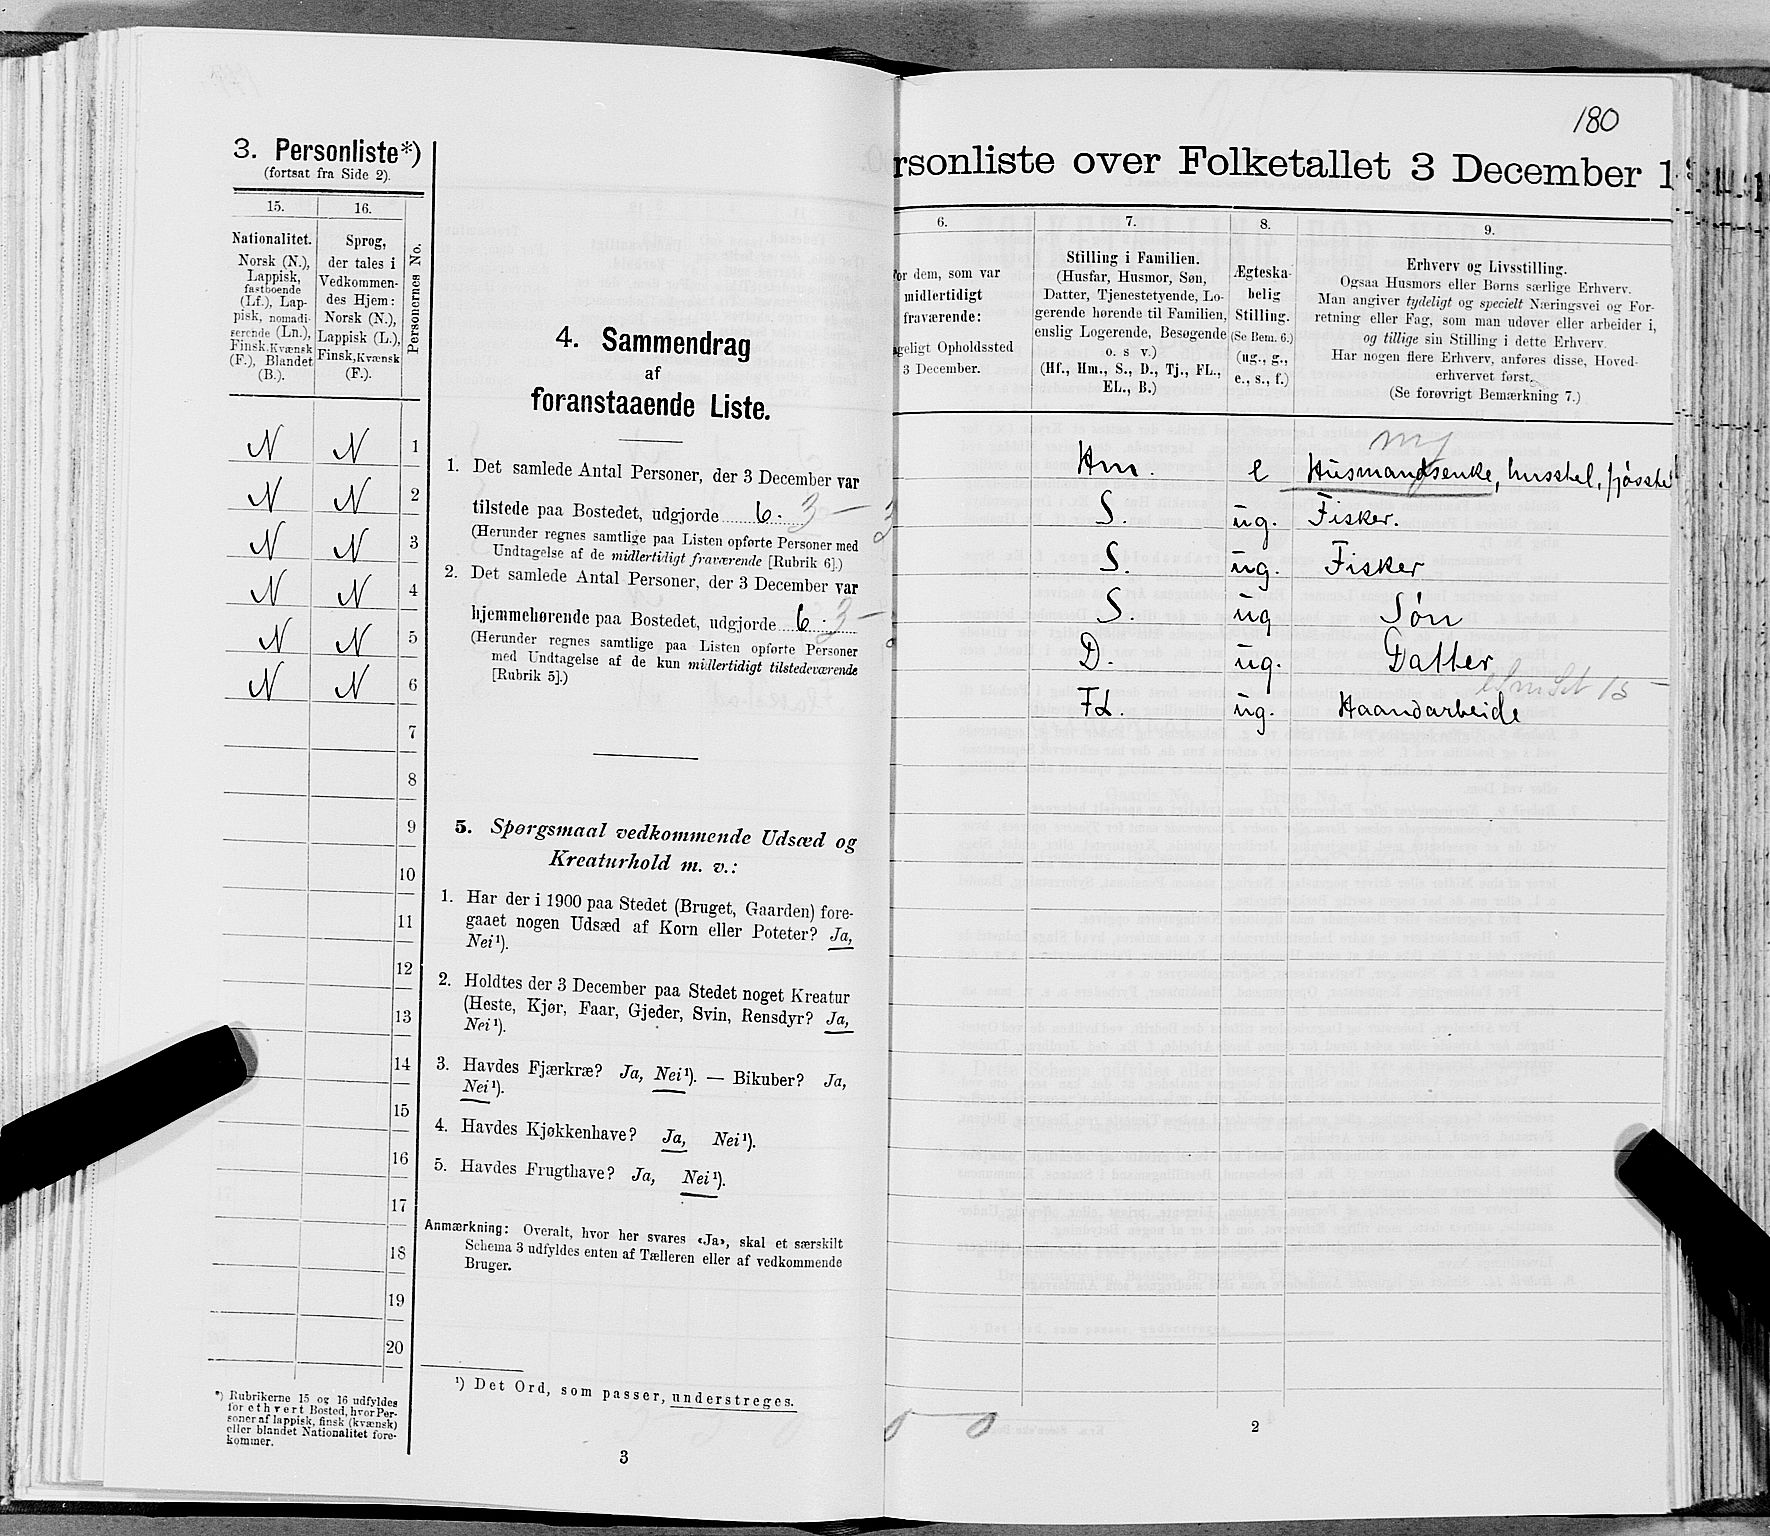 3. Personliste*)
(fortsat fra Side 2).
15.
16.
Personernes No.
Nationalitet.
Norsk (N.),
Lappisk,
fastboende
(Lf.), Lap-
pisk, nomadi-
serende (Ln.),
Finsk, Kvænsk
(F.), Blandet
(B.).
Sprog,
der tales i
Vedkommen-
des Hjem:
Norsk (N.),
Lappisk (L.),
Finsk, Kvænsk
(F.).
N N 1
N N 2
N N 3
N N 4
N N 5
N N 6
7
8
9
10
11
12
13
14
15
16
17
18
19
20
*) Rubrikerne 15 og 16 udfyldes
for ethvert Bosted, hvor Per-
soner af lappisk, finsk (kvænsk)
eller blandet Nationalitet fore-
kommer.
4. Sammendrag
af
foranstaaende Liste.
1. Det samlede Antal Personer, der 3 December var
tilstede paa Bostedet, udgjorde 6. 3 — 3
(Herunder regnes samtlige paa Listen opførte Personer med
Undtagelse af de midlertidigt fraværende [Rubrik 6].)
2. Det samlede Antal Personer, der 3 December var
hjemmehørende paa Bostedet, udgjorde 6. 3 —
(Herunder regnes samtlige paa Listen opførte Personer
med Undtagelse af de kun midlertidigt tilstedeværende
[Rubrik 5].)
5. Spørgsmaal vedkommende Udsæd og
Kreaturhold m. v.:
1. Har der i 1900 paa Stedet (Bruget, Gaarden) fore-
gaaet nogen Udsæd af Korn eller Poteter? Ja,
Nei¹).
2. Holdtes der 3 December paa Stedet noget Kreatur
(Heste, Kjør, Faar, Gjeder, Svin, Rensdyr? Ja,
Nei¹).
3. Havdes Fjærkræ? Ja, Nei¹). — Bikuber? Ja,
Nei¹).
4. Havdes Kjøkkenhave? Ja, Nei¹).
5. Havdes Frugthave? Ja, Nei¹).
Anmærkning: Overalt, hvor her svares «Ja», skal et særskilt
Schema 3 udfyldes enten af Tælleren eller af vedkommende
Bruger.
¹) Det Ord, som passer, understreges.
3
180
rsonliste over Folketallet 3 December 1
6.
7.
8.
9.
or dem, som var
midlertidigt
fraværende:
geligt Opholdssted
3 December.
Stilling i Familien.
(Husfar, Husmor, Søn,
Datter, Tjenestetyende, Lo-
gerende hørende til Familien,
enslig Logerende, Besøgende
o. s v.)
(Hf., Hm., S., D., Tj., FL.,
EL., B.)
Ægteska-
belig
Stilling.
(Se Bem. 6.)
(ug., g.,
e., s., f.)
Erhverv og Livsstilling.
Ogsaa Husmors eller Børns særlige Erhverv.
Man angiver tydeligt og specielt Næringsvei og For-
retning eller Fag, som man udøver eller arbeider i,
og tillige sin Stilling i dette Erhverv.
Har nogen flere Erhverv, anføres disse, Hoved-
erhvervet først.
(Se forøvrigt Bemærkning 7.)
Hm. e Husmandsenke, husstel, fjøsste
S. ug. Fisker.
S. ug. Fisker
S. ug Søn
D. ug. Datter
FL. ug. Haandarbeide
2